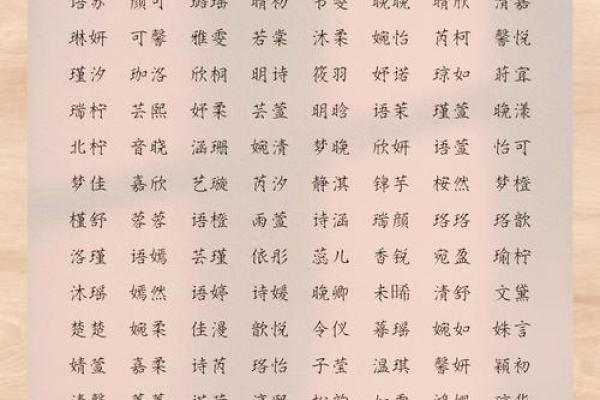 语苏 颜可 璐瑶 晴初 书雯 晚晚 晴欣 清嘉
琳妍 可馨 雅雯 若棠 沐柔 婉怡 芮柯 馨悦
瑾汐 珈洛 欣桐 明诗 筱羽 妤诺 琼如 莳宜
瑞柠 芸熙 妤柔 芸萱 明晗 语茉 瑾萱 晚漾
北柠 音晓 涵珊 婉清 梦晚 欣妍 语萱 怡可
梦佳 嘉欣 艺璇 芮汐 静淇 锦芋 桉然 梦橙
槿舒 蓉蓉 语橙 雨萱 诗涵 瑞颜 珞珞 珞歆
洛瑾 语嫣 芸瑾 依彤 蕊儿 香锐 宛盈 瑜柠
沐瑶 嫣然 语婷 诗媛 晚卿 未晞 清舒 文黛
楚楚 婉柔 佳漫 歆悦 令仪 暮瑶 婉如 姝言
婧萱 嘉柔 诗芮 珞怡 子莹 温琪 馨妍 颖初